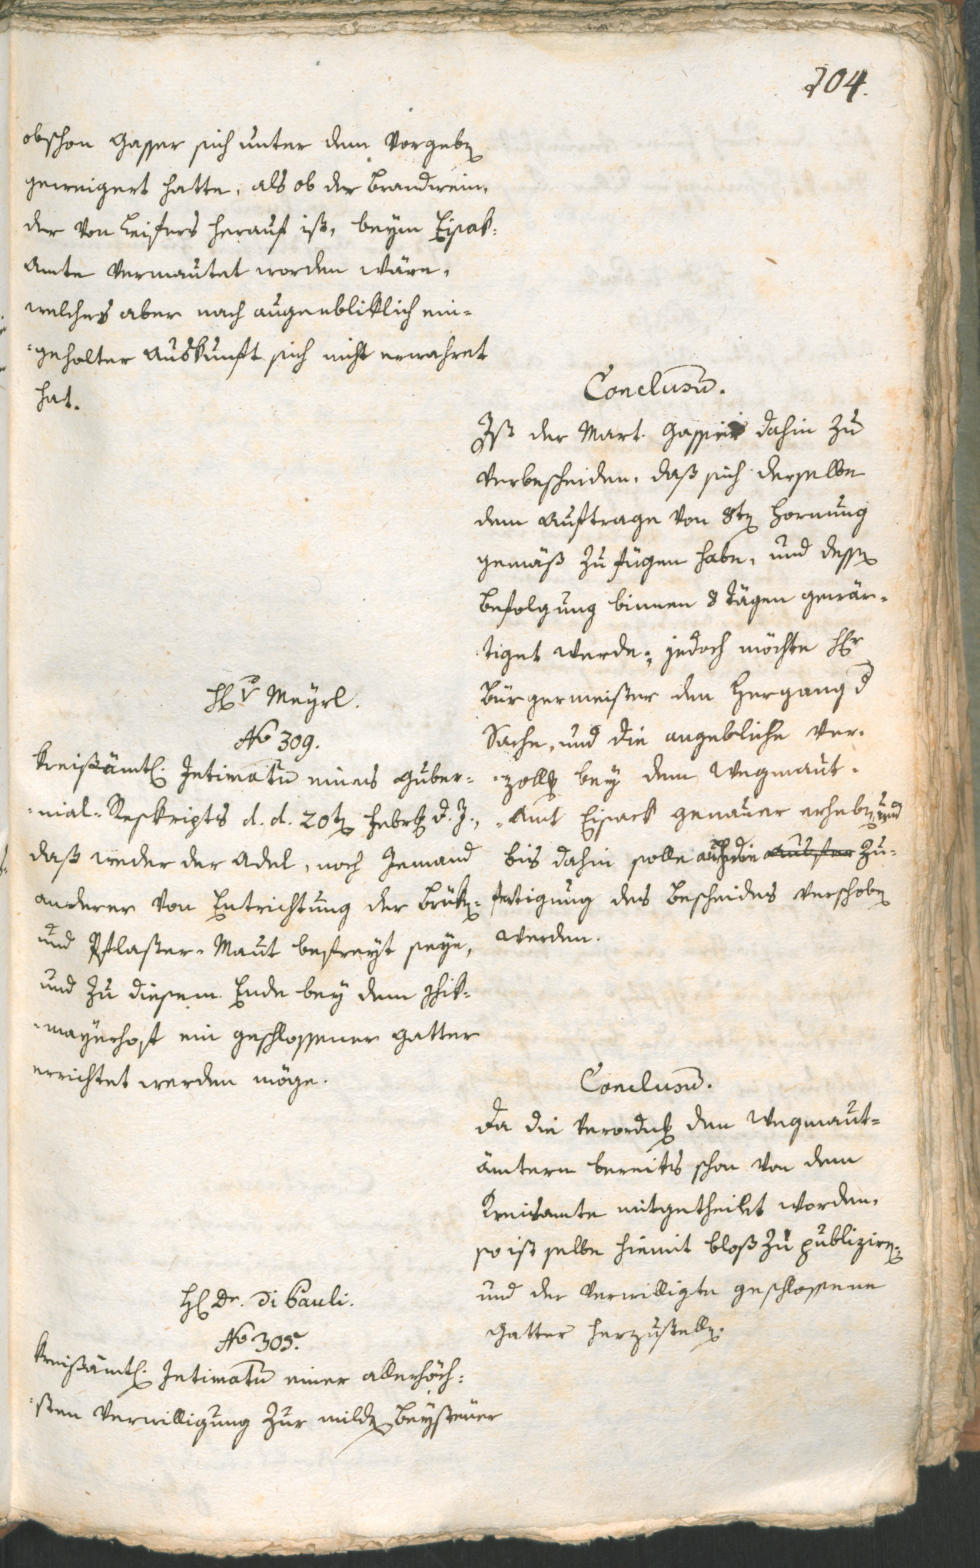 104.
obschon Gasser sich unter dem Vorgeben
geweigert hatte, als ob der Brandwein,
der von Leifers herauf ist, beym Eisak-
Amte vermautet worden wäre,
welches aber nach augenbliklich ein-
geholter Auskunft sich nicht erwahret
hat.
Conclusum.
Ist der Mart. Gasser dahin zu
verbescheiden, daß sich derselbe
dem Auftrage von 8ten Hornung
gemäß zu fügen habe, und dessen
Befolgung binnen 8 Tägen gewär-
tiget werde; jedoch möchte Hr
Bürgermeister den Hergang d
Sache, und die angebliche Ver-
zollg bey dem Wegmaut-
Amt Eisack genauer erheben, und
bis dahin solle auch die Zu-
fertigung des Bescheides verschoben
werden.
H v Meyrl.
No 309.
Kreisämtl. Intimatum eines Guber-
nial-Reskripts d. d. 20ten Febr d. J.,
daß weder der Adel, noch Jemand
anderer von Entrichtung der Bruken-
und Pflaster-Maut befreyt seye,
und zu diesem Ende bey dem
mayrhof ein geschlossener Gatter
errichtet werden möge.
Conclusum.
Da die Verordng den Wegmaut-
ämtern bereits schon von dem
Kreisamte mitgetheilet worden,
so ist selbe hiemit bloß zu publiziren,
und der verwilligte geschlossene
Gatter herzustellen.
H Dr. Di Pauli.
No 305.
Kreisämtl. Intimatum einer allerhöch-
sten Verwilligung zur milden Beysteuer